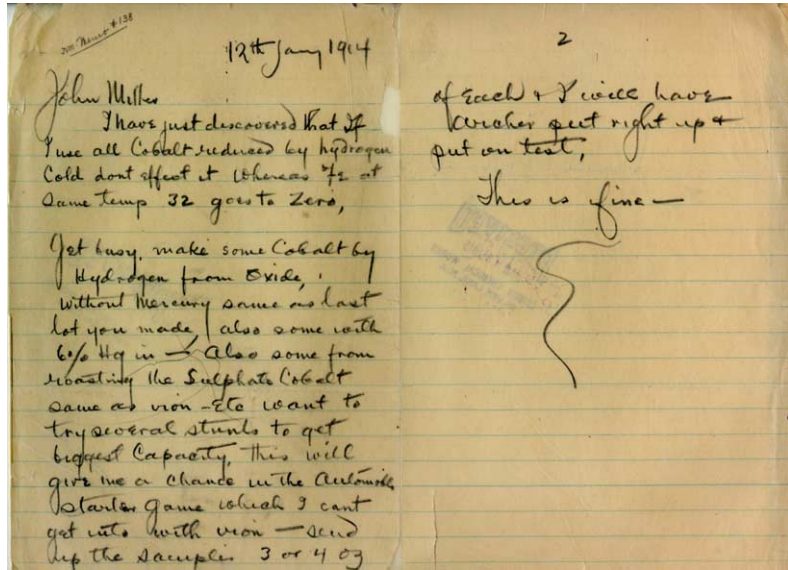 12th Jany 1914
John Miller
I have just discovered that if
I use all Cobalt reduced by hydrogen
Cold dont effect it whereas Fe at
Same temp 32 goes to Zero,
Get busy, make some Cobalt by
Hydrogen from Oxide,
without Mercury same as last
lot you made / also some with
6% Hg in — Also some from
roasting the Sulphate Cobalt
same as iron - Etc want to
try several stunts to get
biggest Capacity, this will
give me a chance in the Automobile
starter Game which I cant
get into with iron — send
up the samples 3 or 4 oz
2
of Each + I will have
Archer put right up +
put on test,
This is fine —